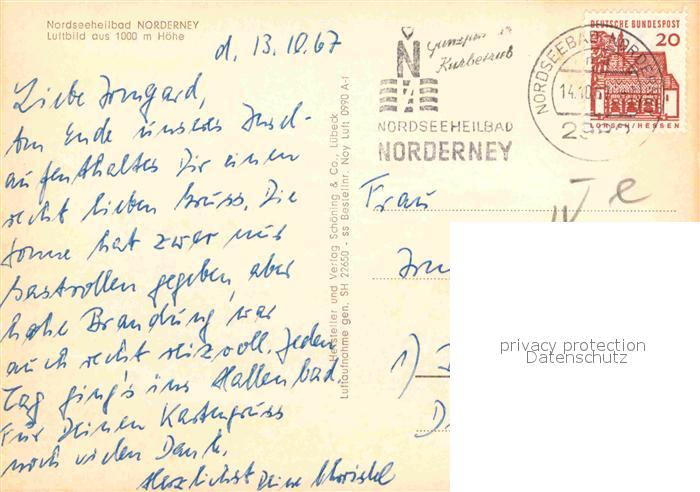 Nordseeheilbad NORDERNEY
Luftbild aus 1000 m Höhe
d. 13.10.67
Liebe Irmgard,
Am Ende unseres Insel-
aufenthaltes Dir einen
recht lieben Gruss. Die
Sonne hat zwar nur
Gastrollen gegeben, aber
hohe Brandung war
auch recht reizvoll. Jeden
Tag ging's ins Hallenbad.
Für Deinen Kartengruss
noch vielen Dank.
Herzlichst Deine
Hersteller und Verlag Schöning & Co., Lübeck
Luftaufnahme gen. SH 22650 - ss Bestellnr. Noy Luft 0990 A-1
N
Ganzjährig
Kurbetrieb
NORDSEEHEILBAD
NORDERNEY
NORDSEEBAD NORDERNEY
14.10.
DEUTSCHE BUNDESPOST
20
LORSCH/HESSEN
Frau
1)
D
privacy protection
Datenschutz